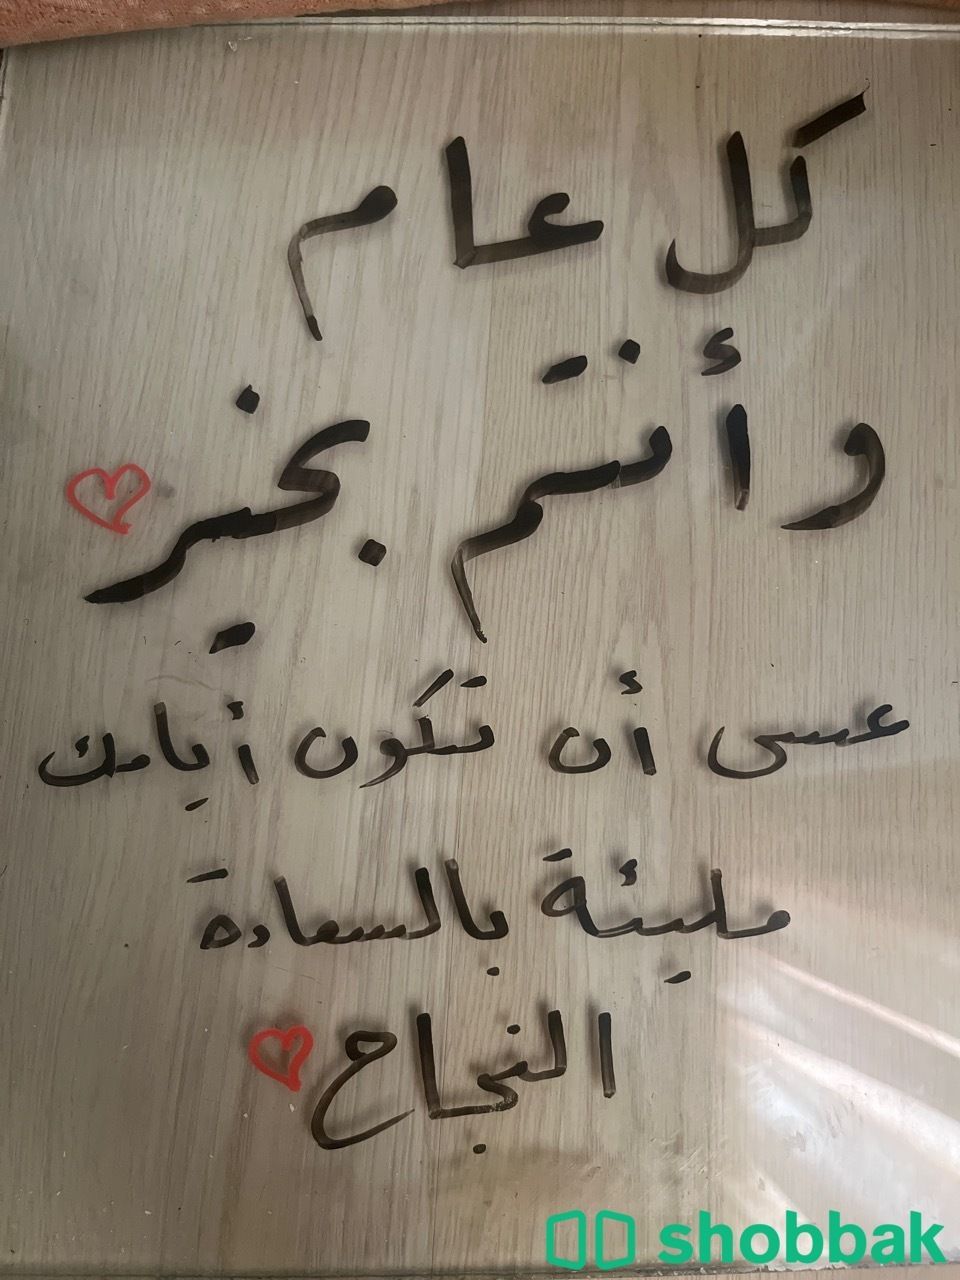 كل عام
وأنتم بخير
عسى أن تكون أيامك
مليئة بالسعادة
النجاح
shobbak